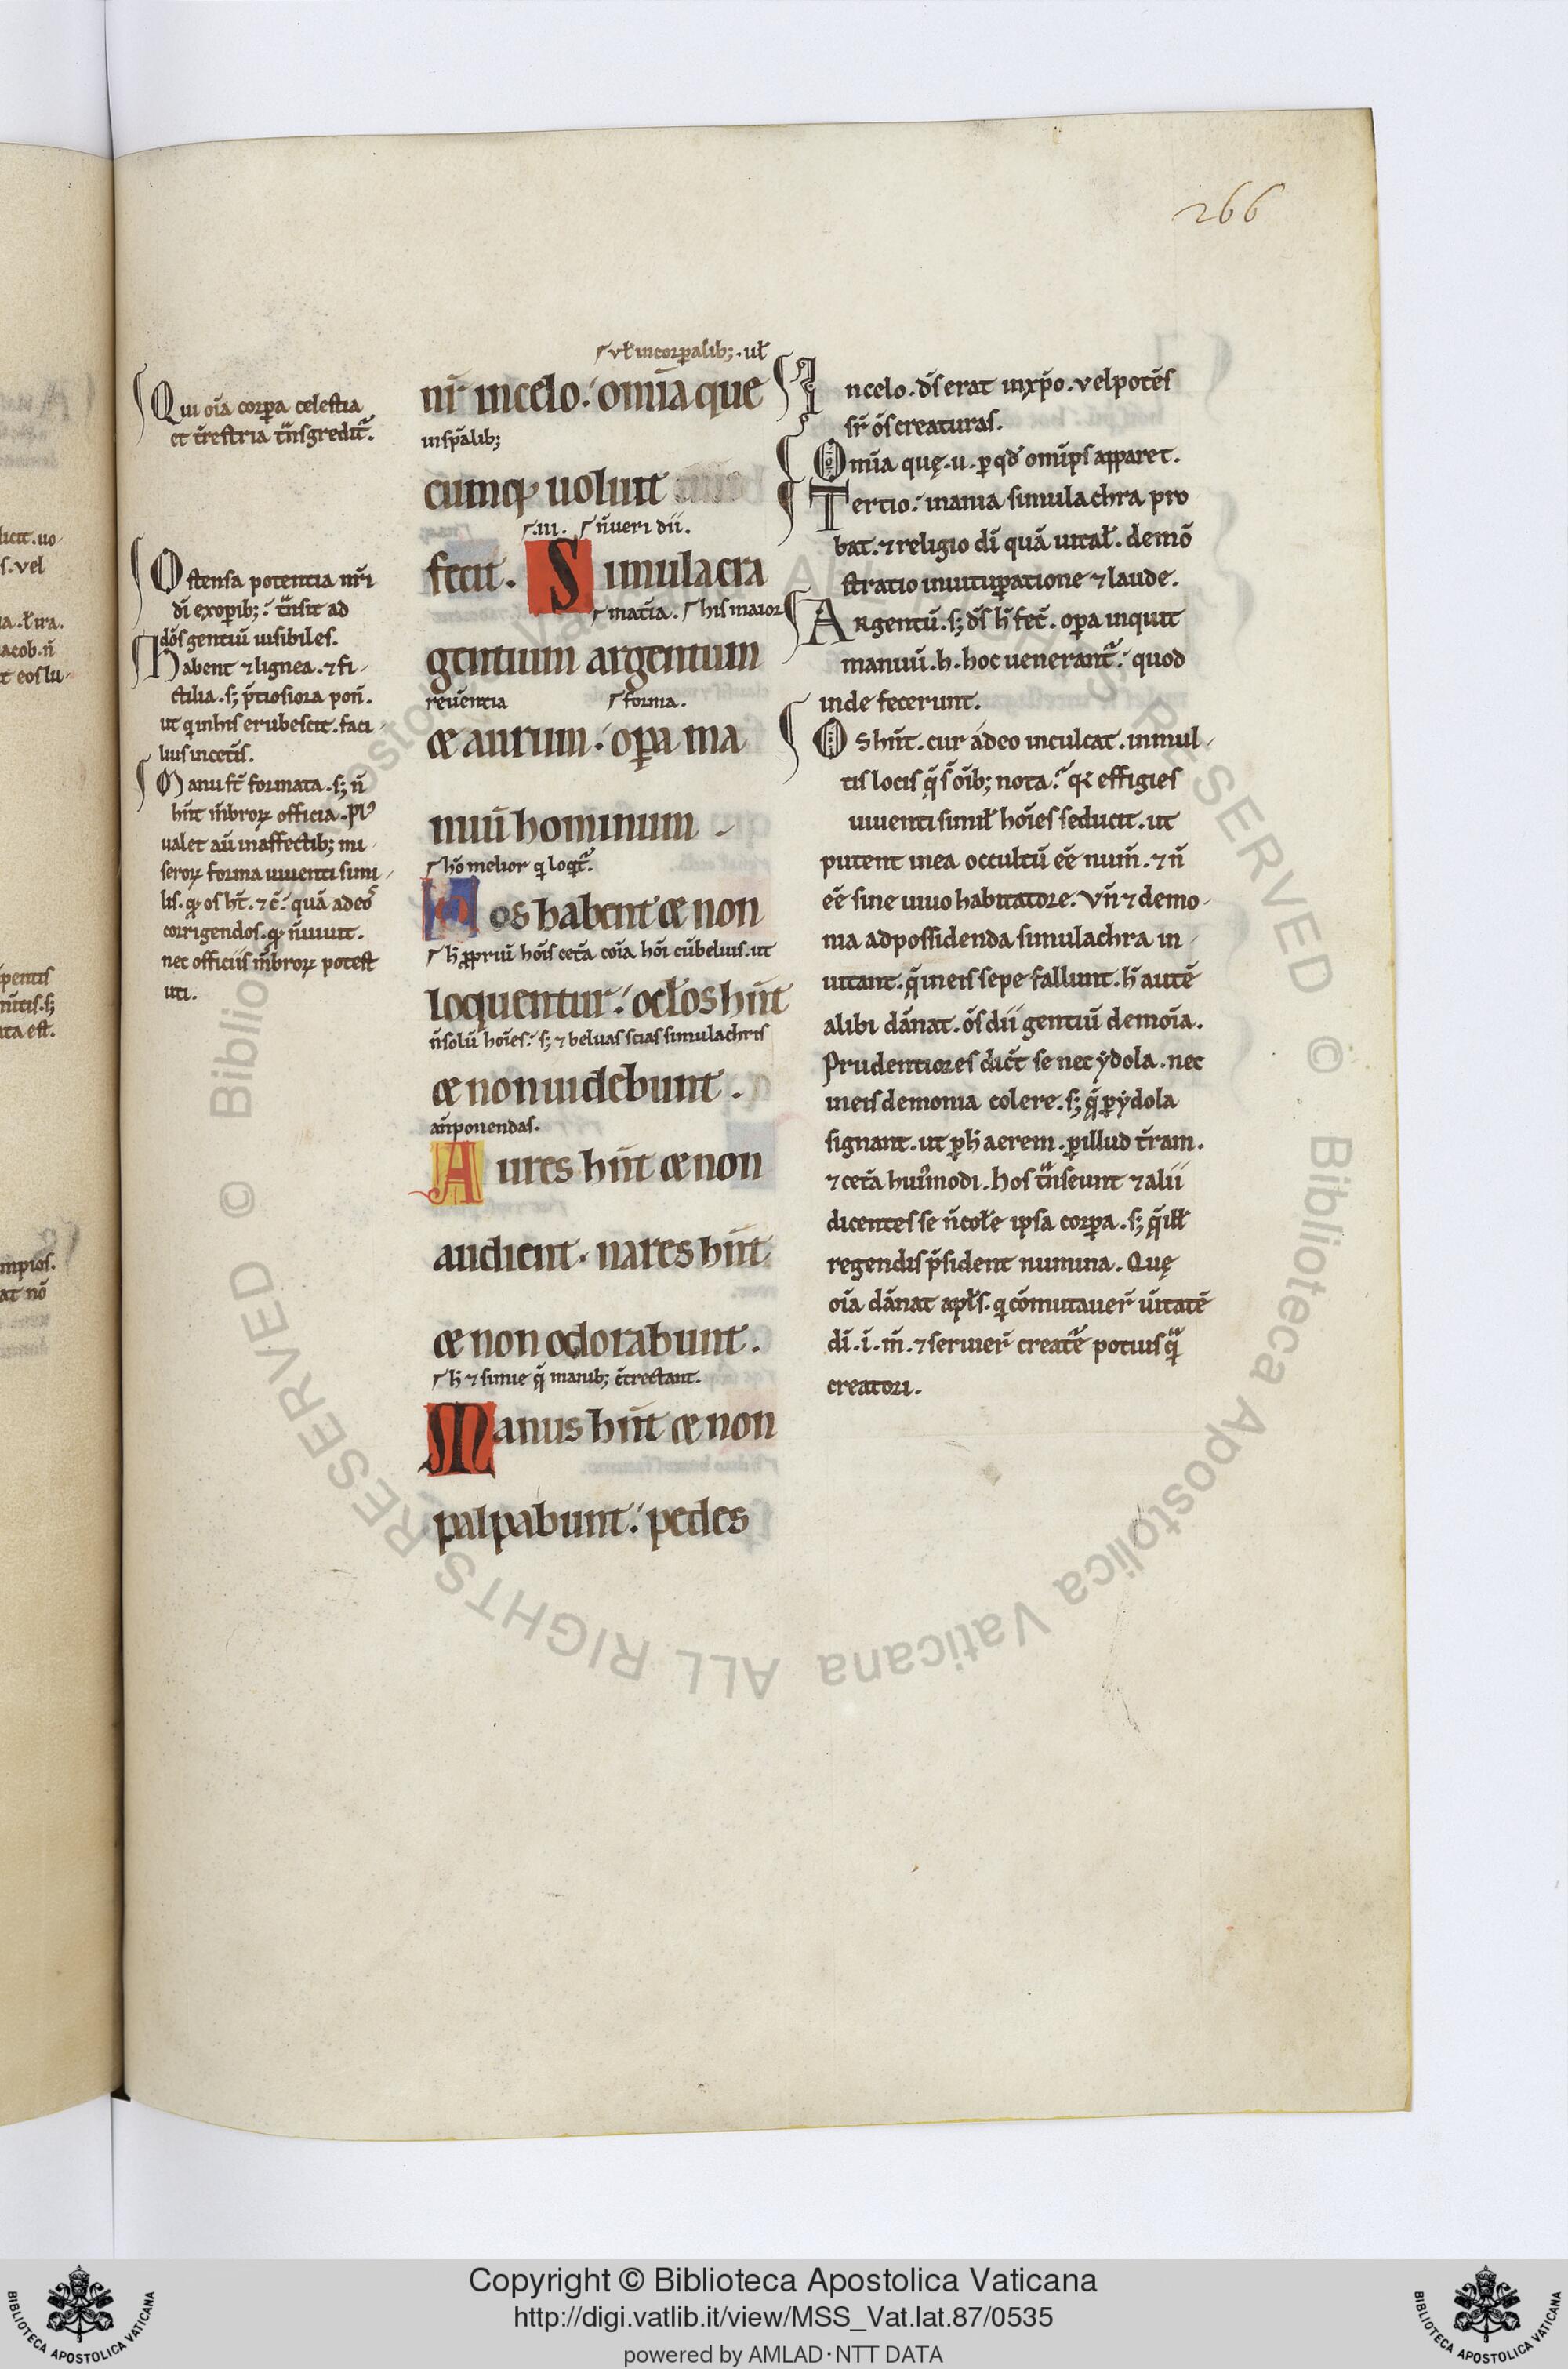 266
Qui oīa corꝑa celestia
et t̄restria tᷓnsgredit᷑.
Ostensa potentia nr̄i
dī exoꝑib;:᷑ tᷓnsit ad
dōs gentiū uisibiles.
Habent ⁊ lignea. ⁊ fi-
ctilia. s; p̄tiosiora pon̄.
ut q inhis erubescit. faci-
lius incet̄is.
Manu fc̄t formata. s; n̄
hn̄t m̄broꝝ officia. Plꝰ
ualet aū inaffectib; mi-
seroꝝ forma uiuenti simi-
lis. qꝫ os ht̄. ⁊ c̄. quā ad eoꝰ
corrigendos. qꝫ n̄uiuit.
nec officiis m̄broꝝ potest
uti.
vl̄ incorꝑalib;. ul̄
nr̄ incelo:᷑ omīa que
insp̄alib;
cumqꝫ uoluit
.iii. n̄ueri dii.
fecit. Simulacra
mat̄ia. his maior
gentium argentum
reuēentia forma.
& aurum. oꝑa ma
nuū hominum -
hō melior q loqt᷑.
Os habent & non
h̄ ꝓpriū hōis cet̄a cōia hōi cūbeluis. ut
loquentur:᷑ ocl̄os hn̄t
n̄solū hōies:᷑ s; ⁊ beluas scias simulachris
& non uidebunt.
an̄ponendas.
Aures hn̄t & non
audient. nares hn̄t
& non odorabunt.
h̄ ⁊ simie q̄ manib; ɔ̄trectant.
Manus hn̄t & non
palpabunt:᷑ pedes
Incelo. d̄s erat inxp̄o. vel potēs
sr̄ ōs creaturas.
Omīa quę. u. ꝑ qd̄ omīps apparet.
Tertio:᷑ inania simulachra pro
bat. ⁊ religio dī quā uital̄. demō
stratio inuituꝑatione ⁊ laude.
Argentū. s; d̄s h̄ fec̄. oꝑa inquit
manuū. h. hoc uenerant᷑:᷑ quod
inde fecerunt.
Os hn̄t. cur adeo inculcat. inmul-
tis locis q̄ s̄ oīb; nota:᷑ qꝛ effigies
uiuenti simil̄ hōies seducit. ut
putent inea occultū ēē num̄. ⁊ n̄
ēē sine uiuo habitatore. Vn̄ ⁊ demo-
nia adpossidenda simulachra in-
uitant. q̄ ineis sepe fallunt. h̄ autē
alibi dānat. ōs dii gentiū demōia.
Prudentiores dict̄ se nec ẏdola. nec
ineis demonia colere. s; q̄ ꝑẏdola
signant. ut ꝑ h̄ aerem. ꝑ illud t̄ram.
⁊ cet̄a huꝰmodi. Hos tᷓnseunt ⁊ alii
dicentes se n̄col̄e ipsa corꝑa. s; q̄ ill̄
regendis p̄sident numina. Quę
oīa dānat apl̄s. q cōmutauer̄ ūitatē
dī. i. m̄. ⁊ seruier̄ creatᷓe potius qᷓ
creatori.
Copyright © Biblioteca Apostolica Vaticana
http://digi.vatlib.it/view/MSS_Vat.lat.87/0535
powered by AMLAD·NTT DATA
© Biblioteca Apostolica Vaticana ALL RIGHTS RESERVED